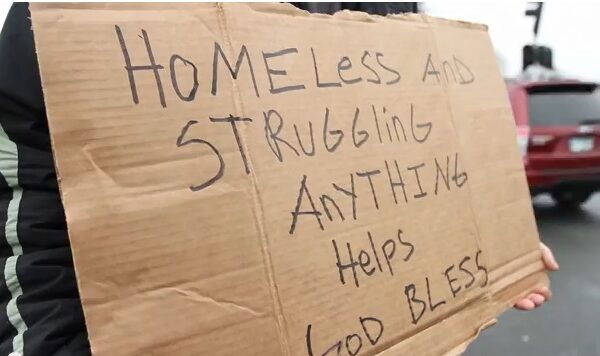 HOMELESS AND
STRUGGLING
ANYTHING
HELPS
GOD BLESS